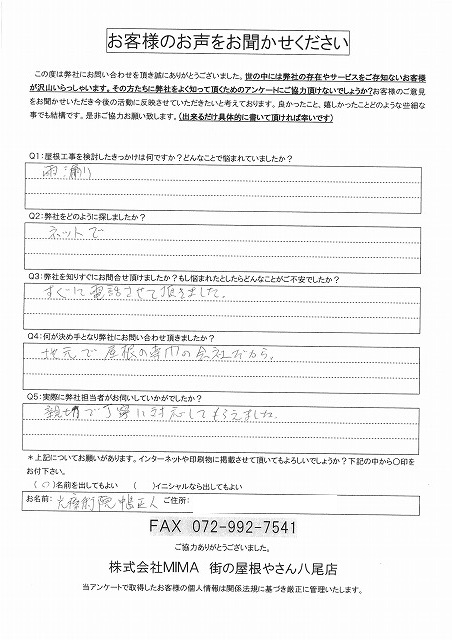 お客様のお声をお聞かせください
この度は弊社にお問い合わせを頂き誠にありがとうございました。世の中には弊社の存在やサービスをご存知ないお客様
が沢山いらっしゃいます。その方たちに弊社をよく知って頂くためのアンケートにご協力頂けないでしょうか?お客様のご意見
をお聞かせいただき今後の活動に反映させていただきたいと考えております。良かったこと、嬉しかったことどのような些細な
事でも結構です。是非ご協力お願い致します。(出来るだけ具体的に書いて頂ければ幸いです)
Q1:屋根工事を検討したきっかけは何ですか?どんなことで悩まれていましたか?
雨漏り
Q2:弊社をどのように探しましたか?
ネットで
Q3:弊社を知りすぐにお問合せ頂けましたか?もし悩まれたとしたらどんなことがご不安でしたか?
すぐに電話させて頂きました。
Q4:何が決め手となり弊社にお問い合わせ頂きましたか?
地元で屋根の専門の会社だから。
Q5:実際に弊社担当者がお伺いしていかがでしたか?
親切で丁寧に対応してもらえました。
*上記についてお願いがあります。インターネットや印刷物に掲載させて頂いてもよろしいでしょうか?下記の中から〇印を
お付下さい。
(〇)名前を出してもよい ( )イニシャルなら出してもよい
お名前: 院 正人 ご住所:
FAX 072-992-7541
ご協力ありがとうございました。
株式会社MIMA 街の屋根やさん八尾店
当アンケートで取得したお客様の個人情報は関係法規に基づき厳正に管理いたします。